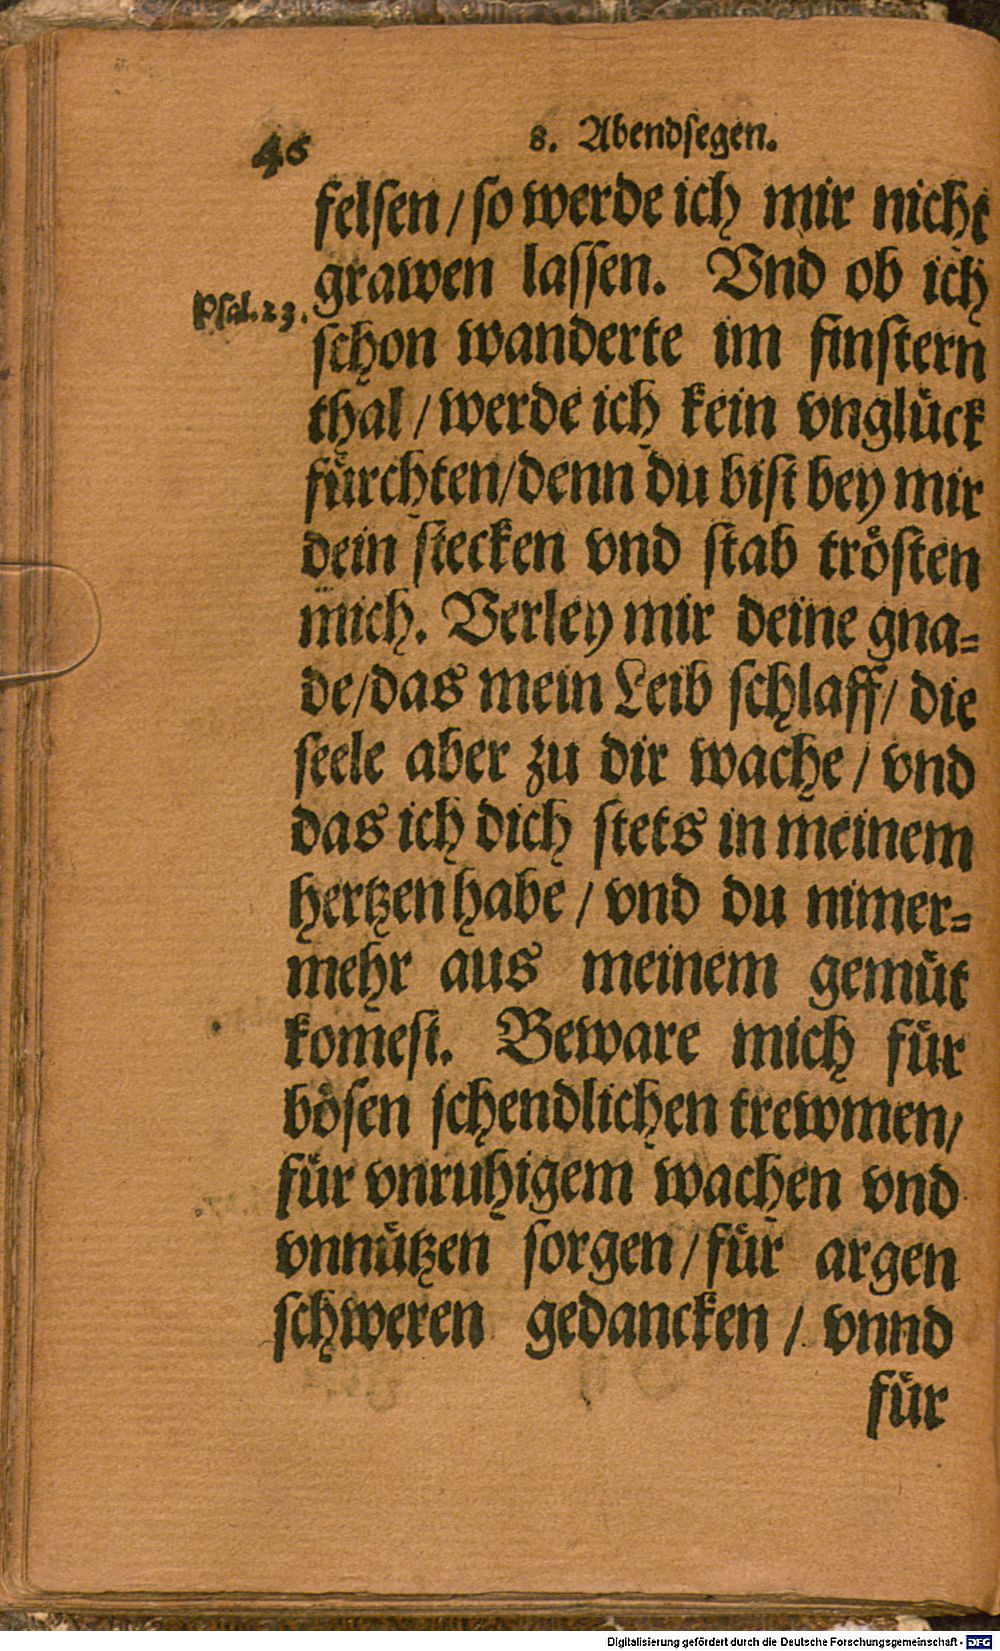 46
8. Abendsegen.
felsen / so werde ich mir nicht
grawen lassen. Vnd ob ich
Psal. 23.
schon wanderte im finstern
thal / werde ich kein vnglück
fürchten / denn du bist bey mir
dein stecken vnd stab trösten
mich. Verley mir deine gna-
de / das mein Leib schlaff / die
seele aber zu dir wache / vnd
das ich dich stets in meinem
hertzen habe / vnd du nimer-
mehr aus meinem gemüt
komest. Beware mich für
bösen schendlichen trewmen /
für vnruhigem wachen vnd
vnnützen sorgen / für argen
schweren gedancken / vnnd
für
Digitalisierung gefördert durch die Deutsche Forschungsgemeinschaft - DFG